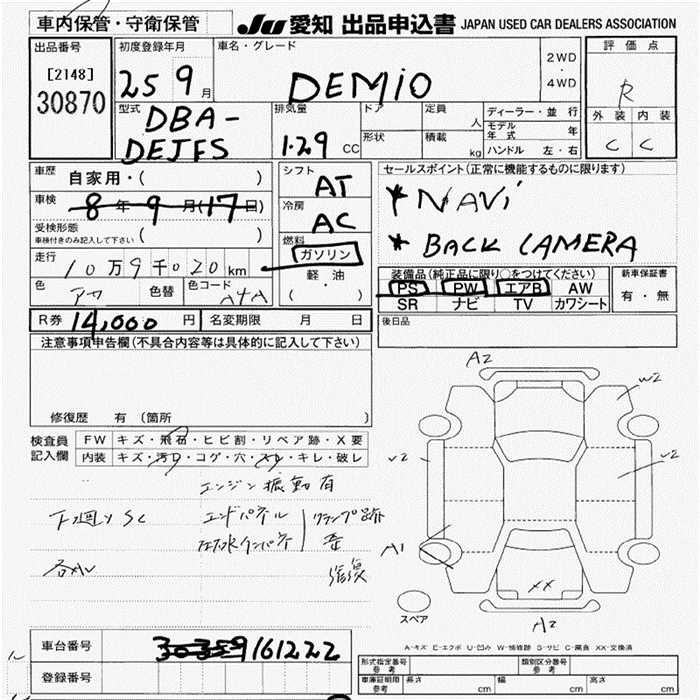 車内保管・守衛保管
JU 愛知 出品申込書 JAPAN USED CAR DEALERS ASSOCIATION
出品番号
[2148]
30870
初度登録年月
25 9月
車名・グレード
DEMIO
2WD
・
4WD
評価点
R
外装 内装
C C
型式
DBA-
DEJFS
排気量
1.29 CC
ドア
形状
定員
人
積載
kg
ディーラー・並行
モデル年式 年
ハンドル 左・右
車歴
自家用・( )
車検
8年9月(17日)
受検形態
車検付きのみ記入して下さい ( )
走行
10万9千020km
色
アカ
色替
色コード
A4A
シフト
AT
冷房
AC
燃料
ガソリン
軽・油
( ・ )
セールスポイント(正常に機能するものに限ります)
* NAVi
* BACK CAMERA
装備品(純正品に限り○をつけてください)
PS PW エアB AW
SR ナビ TV カワシート
新車保証書
有・無
R券 14,000円
名変期限 月 日
後日品
注意事項申告欄(不具合内容等は具体的に記入して下さい)
修復歴 有(箇所 )
検査員
記入欄
FW キズ・飛石・ヒビ割・リペア跡・X要
内装 キズ・汚レ・コゲ・穴・スレ・キレ・破レ
エンジン振動有
下廻り SC
エンドパネル
クランプ跡
歪
修復
A2
W2
V2
V2
A1
XX
A2
スペア
A-キズ E-エクボ U-凹み W-補修跡 S-サビ C-腐食 XX-交換済
車台番号
30359 161222
登録番号
形式指定番号
参考
類別区分番号
参考
車庫証明用
参考
長さ cm
幅 cm
高さ cm